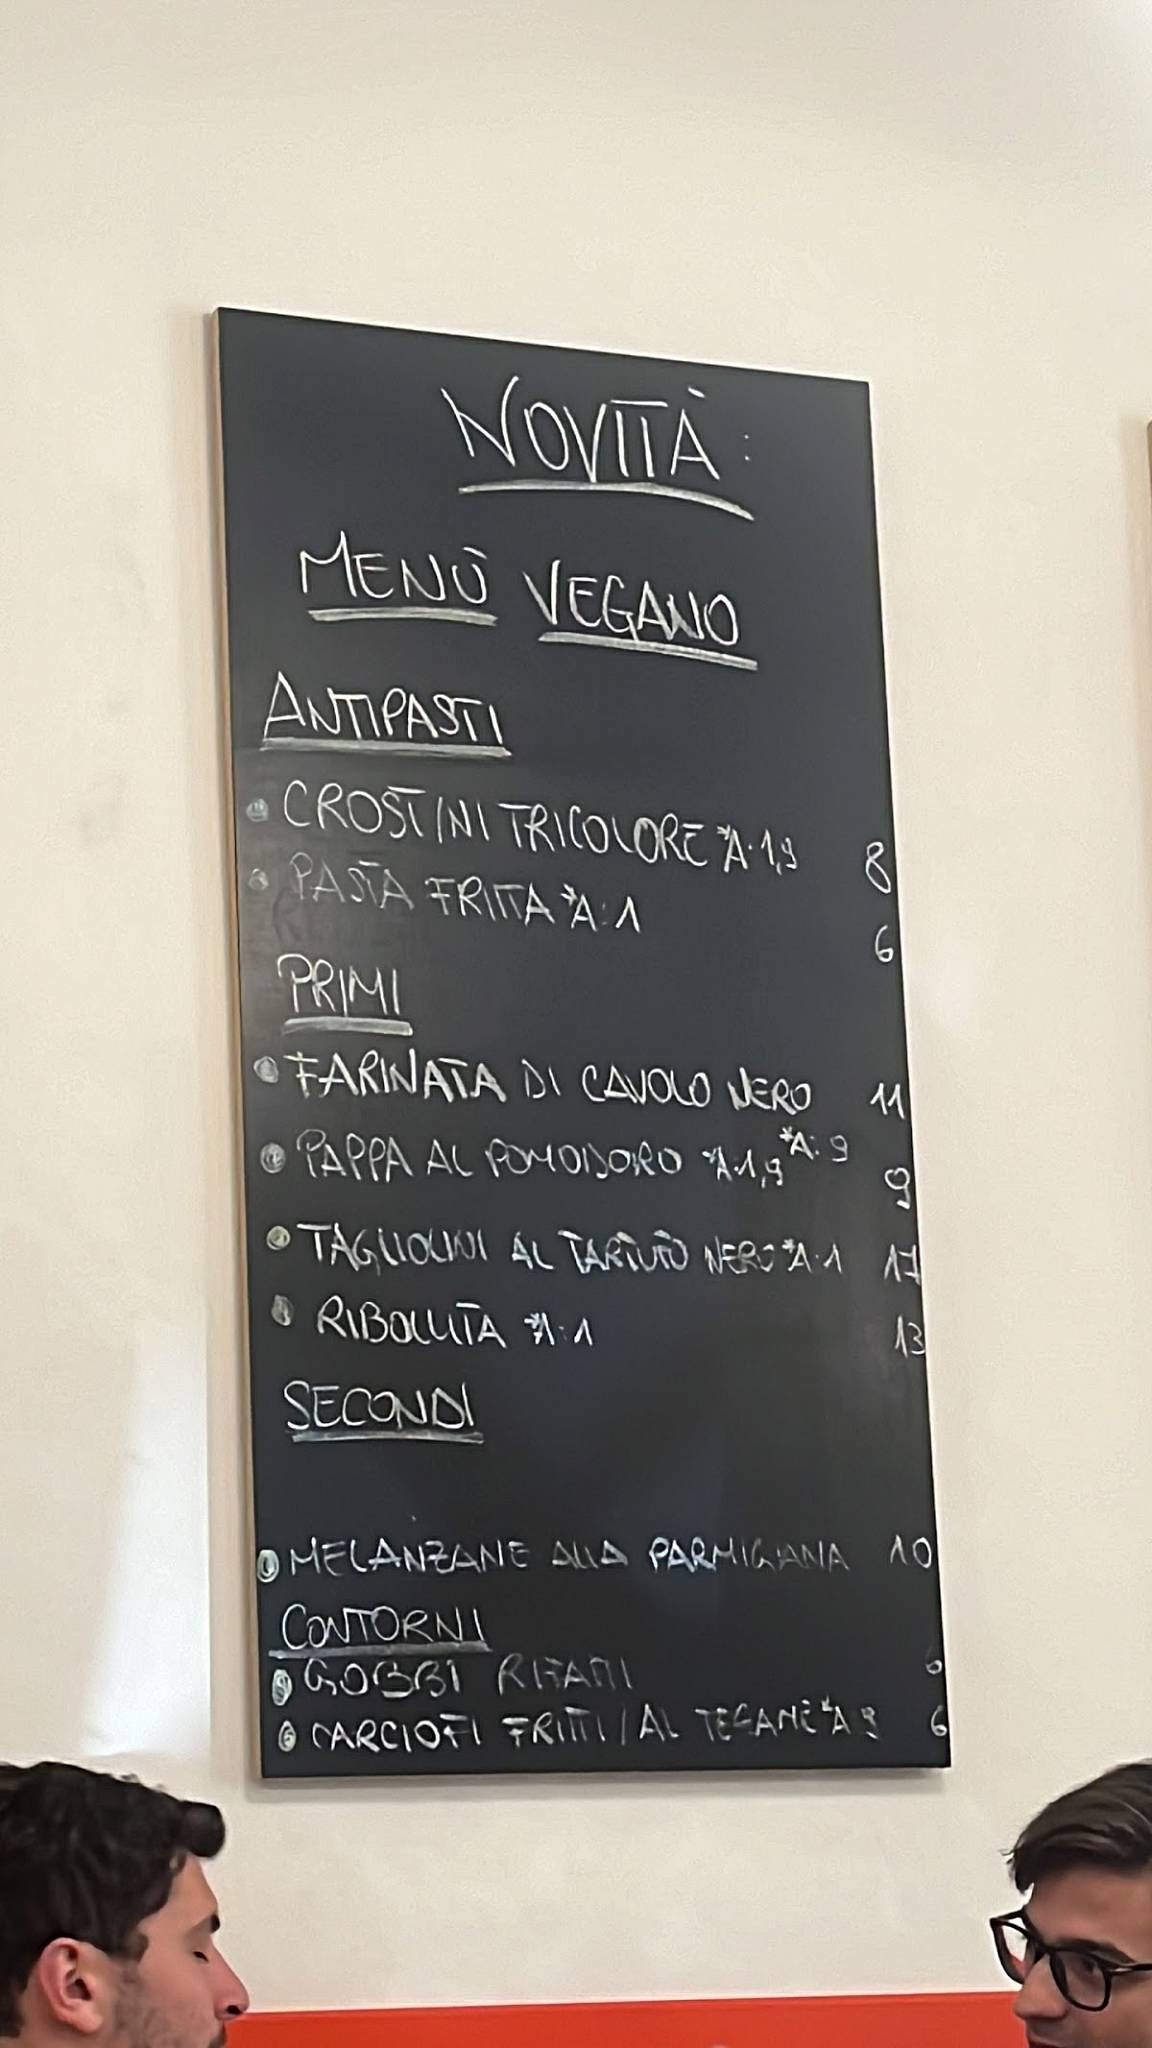 NOVITÀ:
MENÙ VEGANO
ANTIPASTI
• CROSTINI TRICOLORE *A:1,9 8
• PASTA FRITTA *A:1 6
PRIMI
• FARINATA DI CAVOLO NERO 11
• PAPPA AL POMODORO *A:1,9 *A:9 9
• TAGLIOLINI AL TARTUFO NERO *A:1 17
• RIBOLLITA *A:1 13
SECONDI
• MELANZANE ALLA PARMIGIANA 10
CONTORNI
• GOBBI RIFATTI 6
• CARCIOFI FRITTI/AL TEGAME *A 9 6